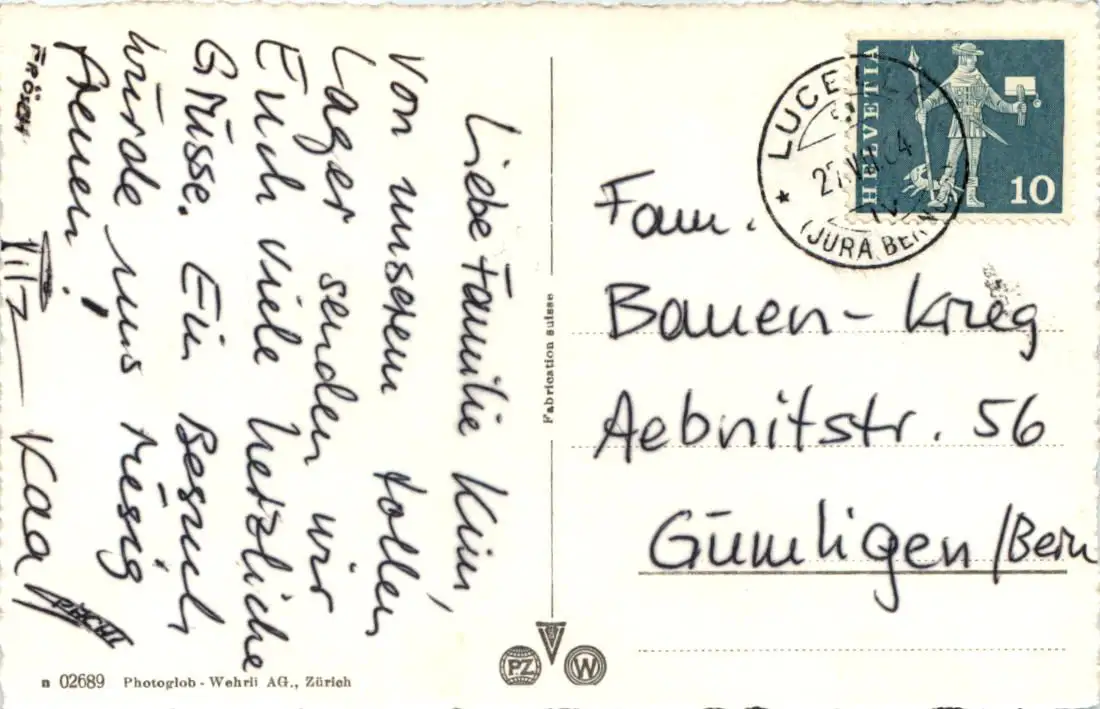 Liebe Familie Kim,
Von unserem tollen
Lager senden wir
Euch viele herzliche
Grüsse. Ein Besuch
würde uns riesig
freuen!
FRÖSCH
Kaa
Fabrication suisse
HELVETIA
10
LUCELLE
27.VII.64
(JURA BERNOIS)
Fam.
Bauen-Krieg
Aebnitstr. 56
Gümligen/Bern
PZ W
n 02689 Photoglob-Wehrli AG., Zürich